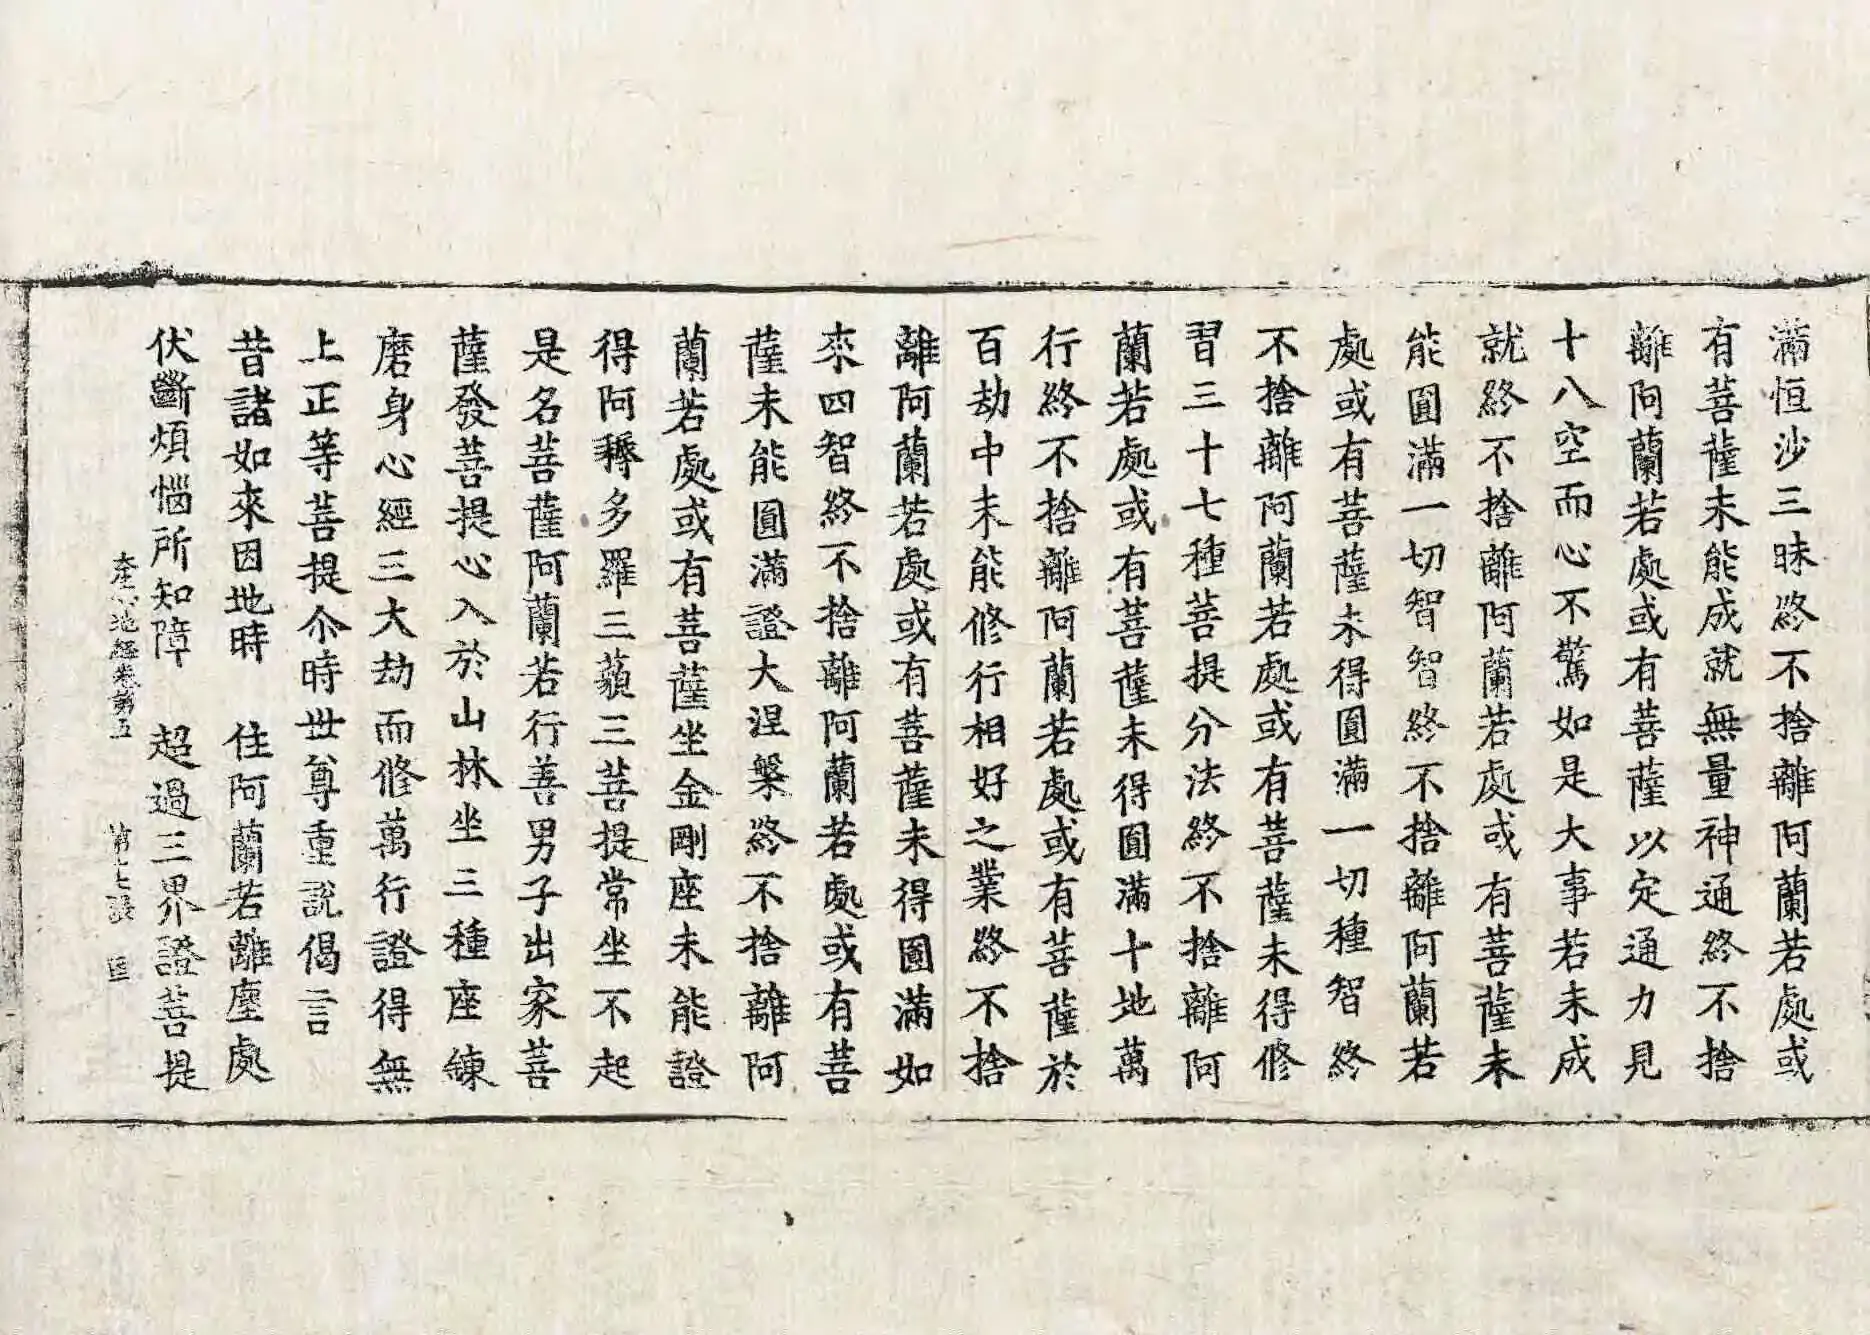 滿恒沙三昧終不捨離阿蘭若處或
有菩薩未能成就無量神通終不捨
離阿蘭若處或有菩薩以定通力見
十八空而心不驚如是大事若未成
就終不捨離阿蘭若處或有菩薩未
能圓滿一切智智終不捨離阿蘭若
處或有菩薩未得圓滿一切種智終
不捨離阿蘭若處或有菩薩未得修
習三十七種菩提分法終不捨離阿
蘭若處或有菩薩未得圓滿十地萬
行終不捨離阿蘭若處或有菩薩於
百劫中未能修行相好之業終不捨
離阿蘭若處或有菩薩未得圓滿如
來四智終不捨離阿蘭若處或有菩
薩未能圓滿證大涅槃終不捨離阿
蘭若處或有菩薩坐金剛座未能證
得阿耨多羅三藐三菩提常坐不起
是名菩薩阿蘭若行善男子出家菩
薩發菩提心入於山林坐三種座練
磨身心經三大劫而修萬行證得無
上正等菩提尒時世尊重說偈言
昔諸如來因地時　住阿蘭若離塵處
伏斷煩惱所知障　超過三界證菩提
地經卷第五　第七張